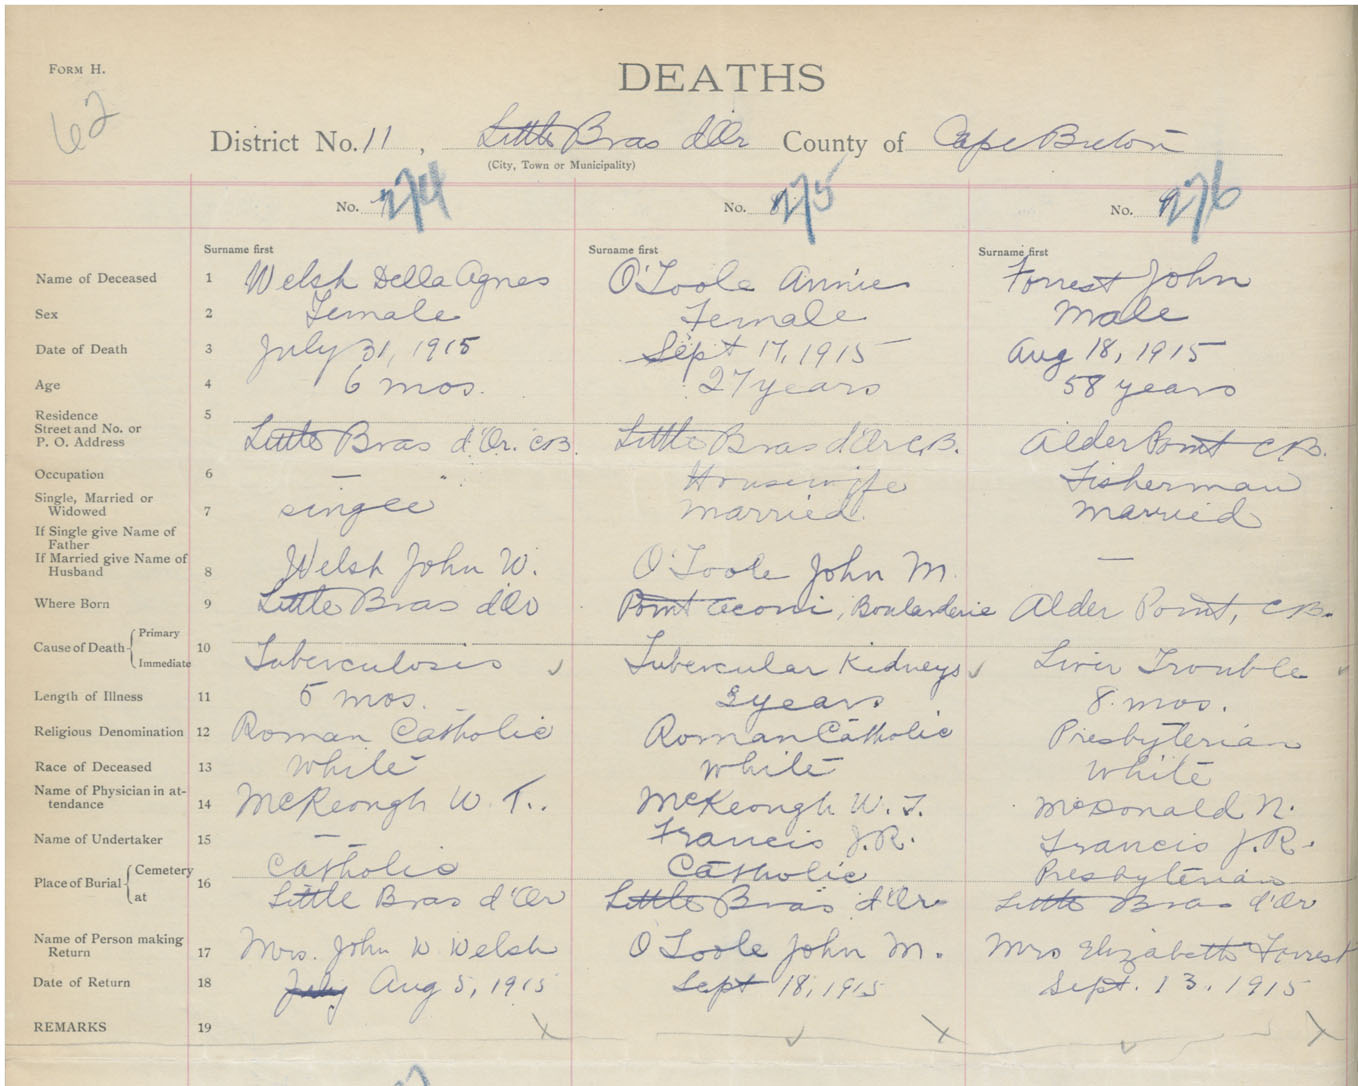 FORM H.
62
DEATHS
District No. 11, Little Bras d'Or County of Cape Breton
(City, Town or Municipality)
No. 274 No. 275 No. 276
Surname first Surname first Surname first
Name of Deceased 1 Welsh Della Agnes O'Toole Annie Forrest John
Sex 2 Female Female Male
Date of Death 3 July 31, 1915 Sept 17, 1915 Aug 18, 1915
Age 4 6 mos. 27 years 58 years
Residence 5
Street and No. or
P. O. Address Little Bras d'Or. C.B. Little Bras d'Or C.B. Alder Point C.B.
Occupation 6 — " Housewife Fisherman
Single, Married or
Widowed 7 single married. married
If Single give Name of
Father
If Married give Name of
Husband 8 Welsh John W. O'Toole John M. —
Where Born 9 Little Bras d'Or Point Aconi, Boularderie Alder Point, C.B.
Cause of Death Primary 10
Immediate Tuberculosis Tubercular Kidneys Liver Trouble
Length of Illness 11 5 mos. 3 years 8 mos.
Religious Denomination 12 Roman Catholic Roman Catholic Presbyterian
Race of Deceased 13 White White White
Name of Physician in at-
tendance 14 McKeongh W. T.. McKeongh W. T. McDonald N.
Name of Undertaker 15 — Francis J. R. Francis J. R.
Place of Burial Cemetery 16 Catholic Catholic Presbyterian
at Little Bras d'Or Little Bras d'Or Little Bras d'Or
Name of Person making
Return 17 Mrs. John W Welsh O'Toole John M. Mrs Elizabeth Forrest
Date of Return 18 July Aug 5, 1915 Sept 18, 1915 Sept. 13. 1915
REMARKS 19